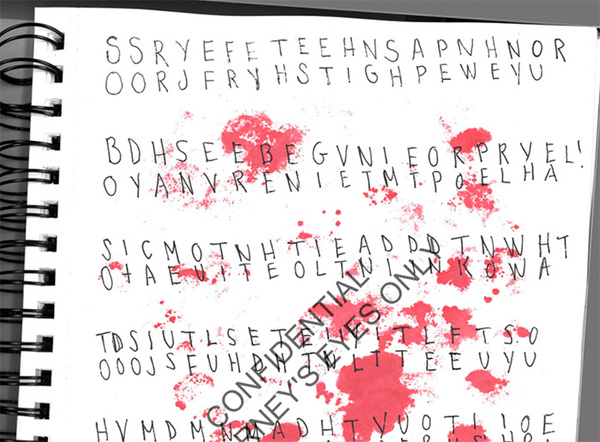 S S R Y E F E T E E H N S A P N H N O R
O O R J F R Y H S T I G H P E W E Y U
B D H S E E B E G V N I E O R P R Y E L !
O Y A N V R E N I E T M T P O E L H A
S I C M O T N H T I E A D D D T N W H T
O T A E U I T E O L T N I I N K O W A
T D S I U T L S E T E I T L F T S O
O O O J S F U H D T E E U Y U
H V M D M A D H T V U O T
CONFIDENTIAL
NEY'S EYES ONLY